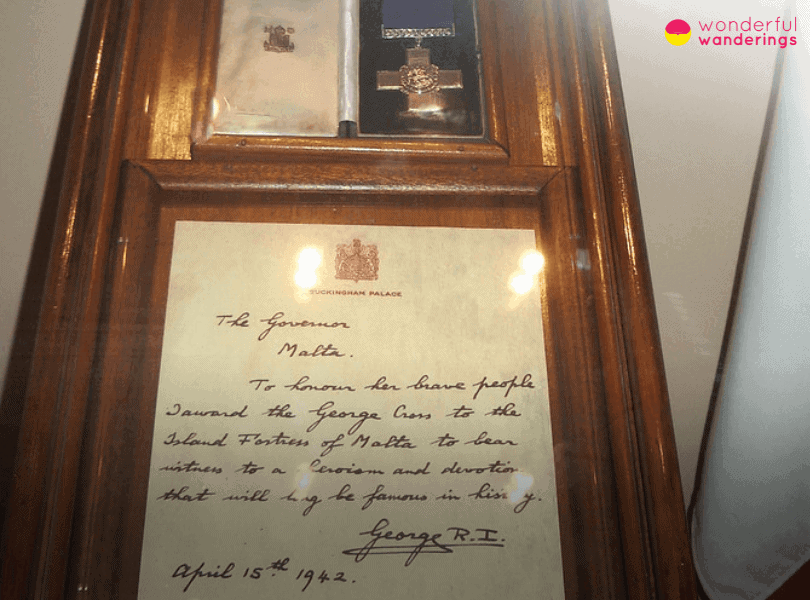 wonderful
wanderings
BUCKINGHAM PALACE
The Governor
Malta.
To honour her brave people
I award the George Cross to the
Island Fortress of Malta to bear
witness to a heroism and devotion
that will long be famous in history.
George R.I.
April 15th 1942.